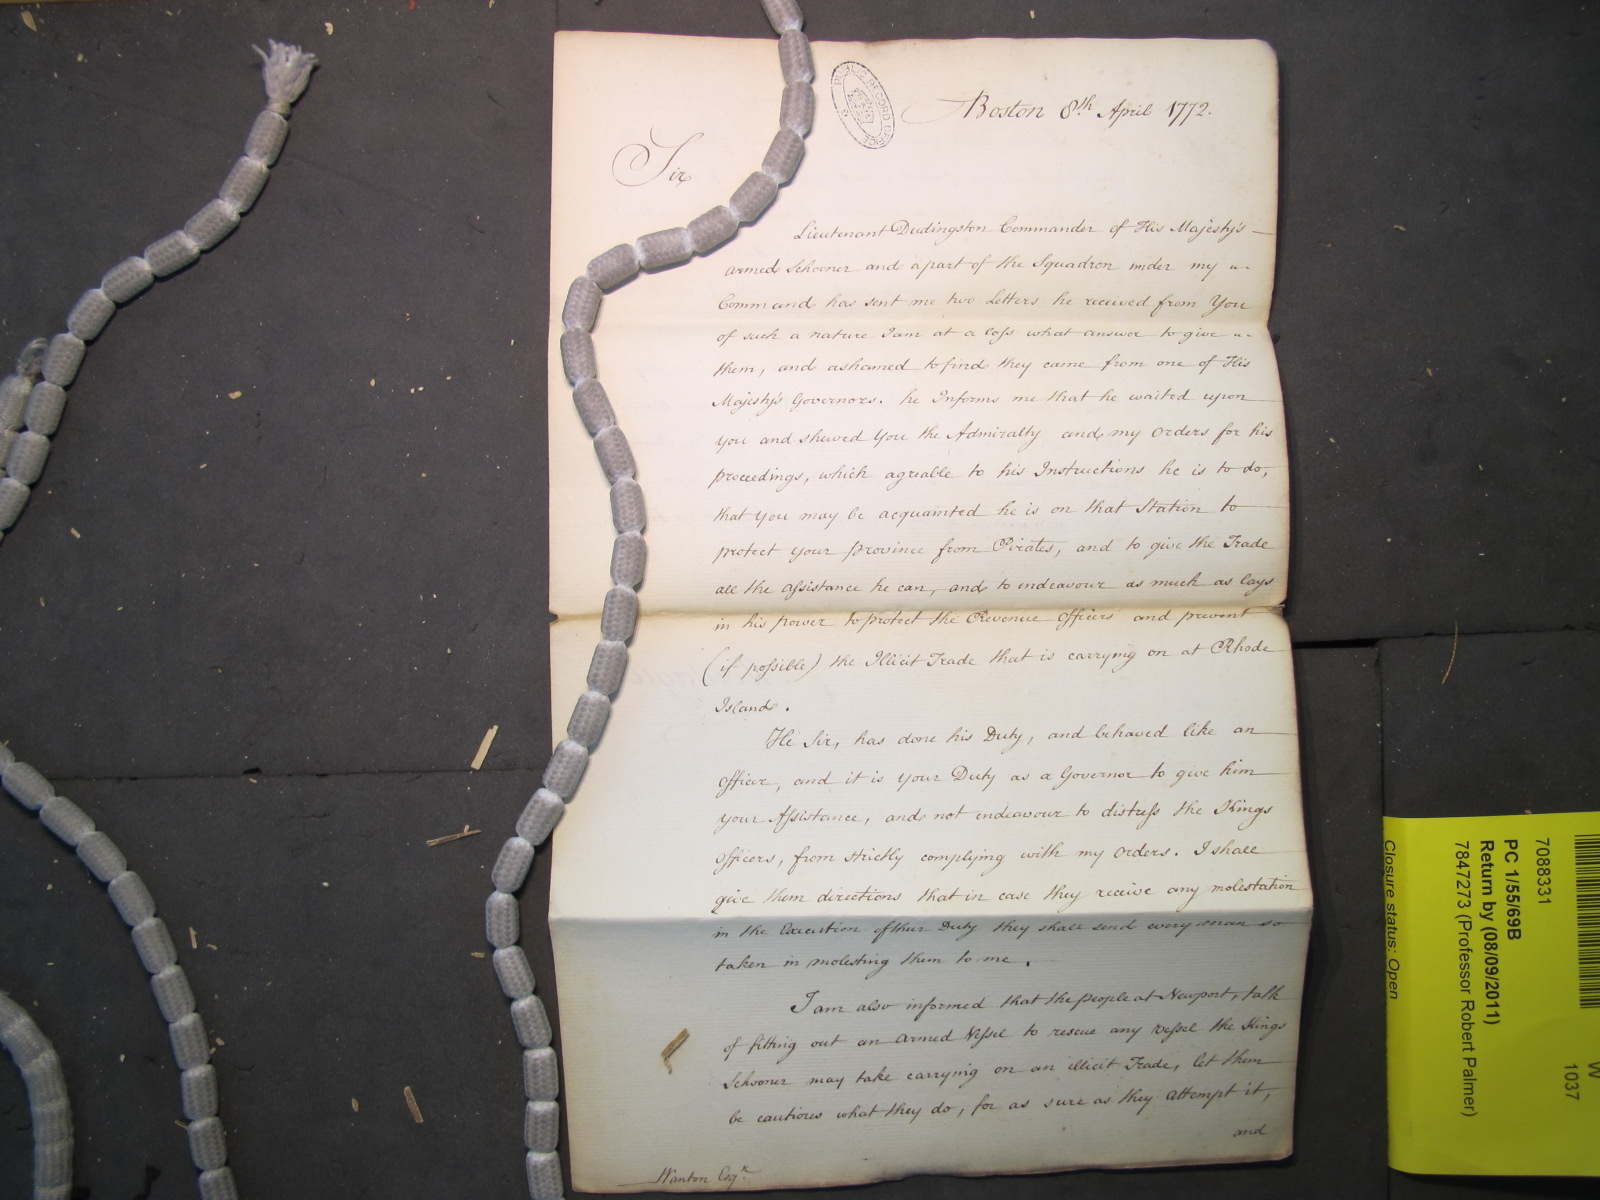 PUBLIC RECORD OFFICE
Boston 8th April 1772.
Sir
Lieutenant Dudingston Commander of His Majesty's
armed Schooner and a part of the Squadron under my
Command has sent me two Letters he received from You
of such a nature I am at a loss what answer to give
them, and ashamed to find they came from one of His
Majesty's Governors. he Informs me that he waited upon
you and shewed You the Admiralty and my Orders for his
proceedings, which agreable to his Instructions he is to do,
that You may be acquainted he is on that Station to
protect your province from Pirates, and to give the Trade
all the Assistance he can, and to endeavour as much as lays
in his power to protect the Revenue Officers and prevent
(if possible) the Illicit Trade that is carrying on at Rhode
Island.
He Sir, has done his Duty, and behaved like an
Officer, and it is your Duty as a Governor to give him
your Assistance, and not endeavour to distress the Kings
Officers, from strictly complying with my Orders. I shall
give them directions that in case they receive any molestation
in the Execution of their Duty they shall send every man so
taken in molesting them to me.
I am also informed that the people at Newport, talk
of fitting out an Armed Vessel to rescue any vessel the Kings
Schooner may take carrying on an illicit Trade, let them
be cautious what they do, for as sure as they attempt it,
and
Wanton Esqr.
W 1037
7088331
PC 1/55/69B
Return by (08/09/2011)
7847273 (Professor Robert Palmer)
Closure status: Open